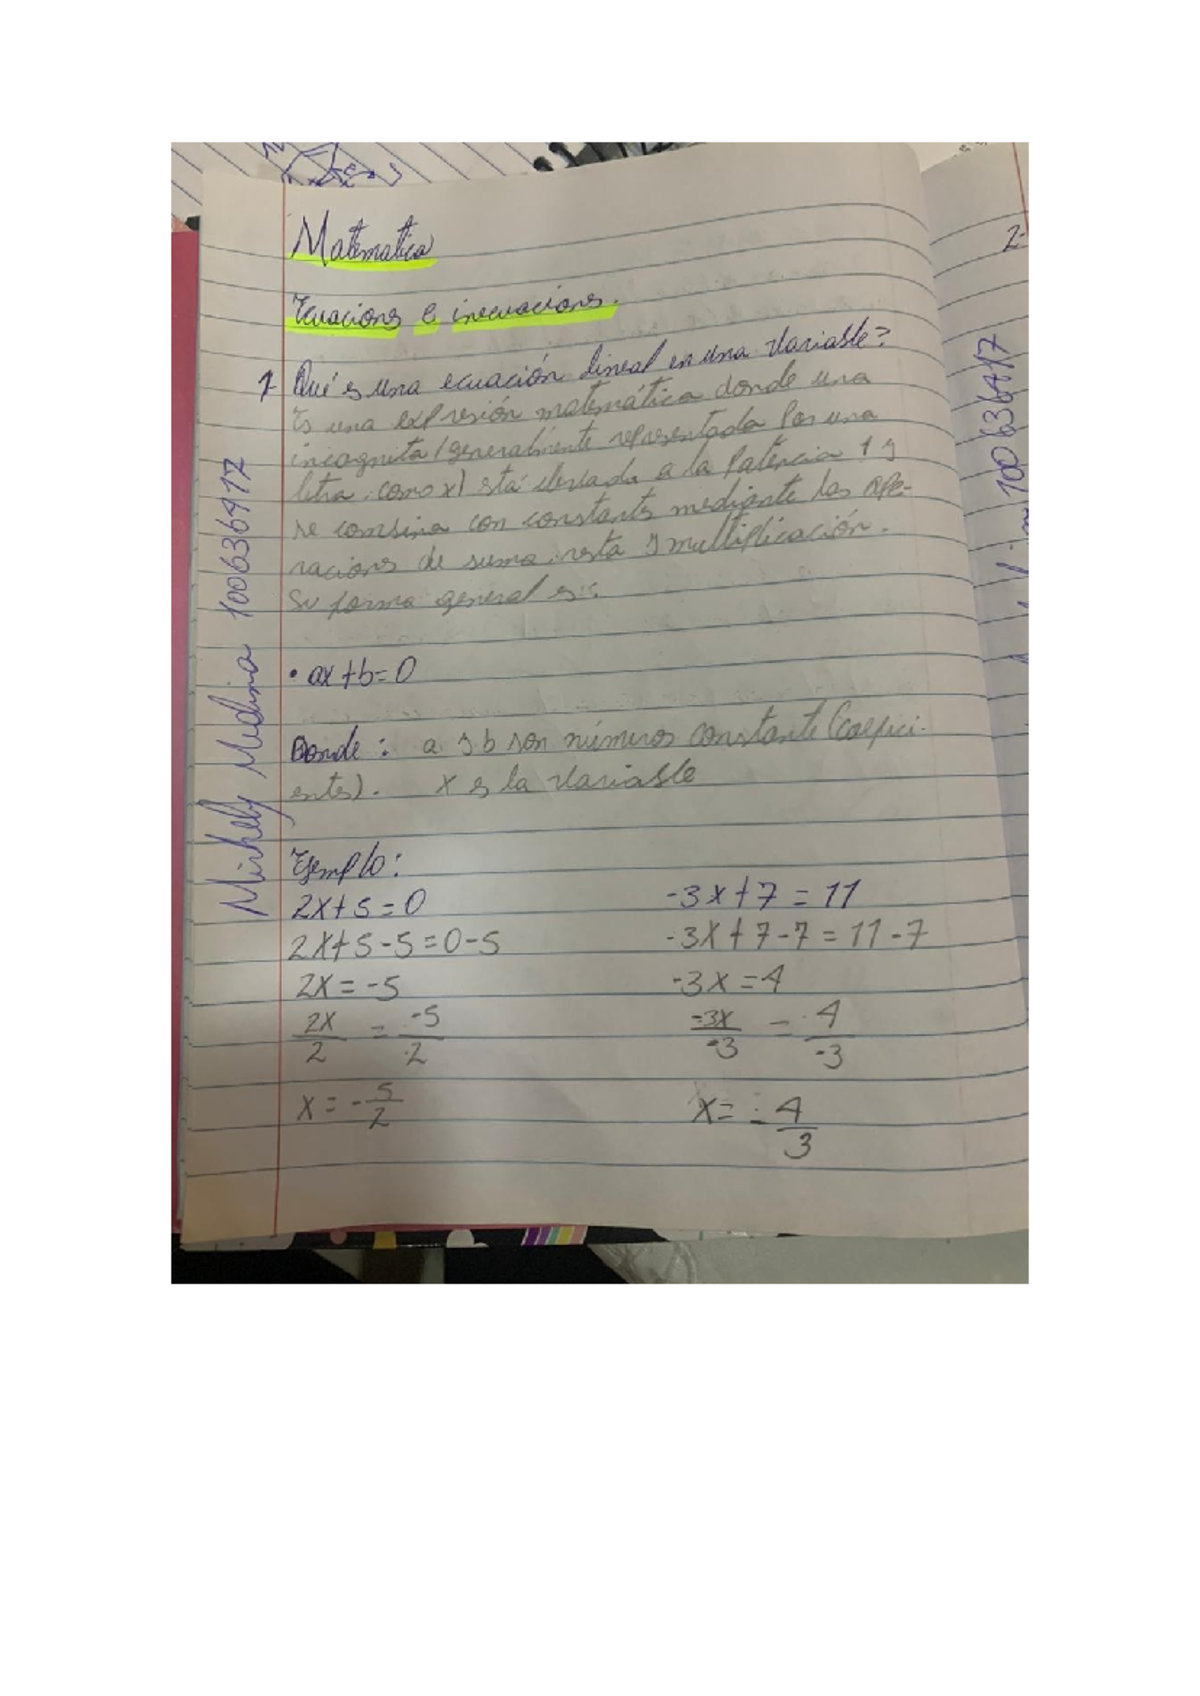 Matematica
Ecuaciones e inecuaciones.
1- Qué es una ecuación lineal en una variable?
Es una expresión matemática donde una
incognita (generalmente representada por una
letra, como x) está elevada a la potencia 1 y
se combina con constantes mediante las ope-
raciones de suma, resta y multiplicación.
Su forma general es:
• ax+b=0
Donde: a y b son números constante (coefici-
entes). x es la variable
Ejemplo:
2x+5=0
2x+5-5=0-5
2x=-5
2x/2 = -5/2
x=-5/2
-3x+7=11
-3x+7-7=11-7
-3x=4
-3x/-3 = 4/-3
x=-4/3
Mirhely Medina 100636917
2-
100636917